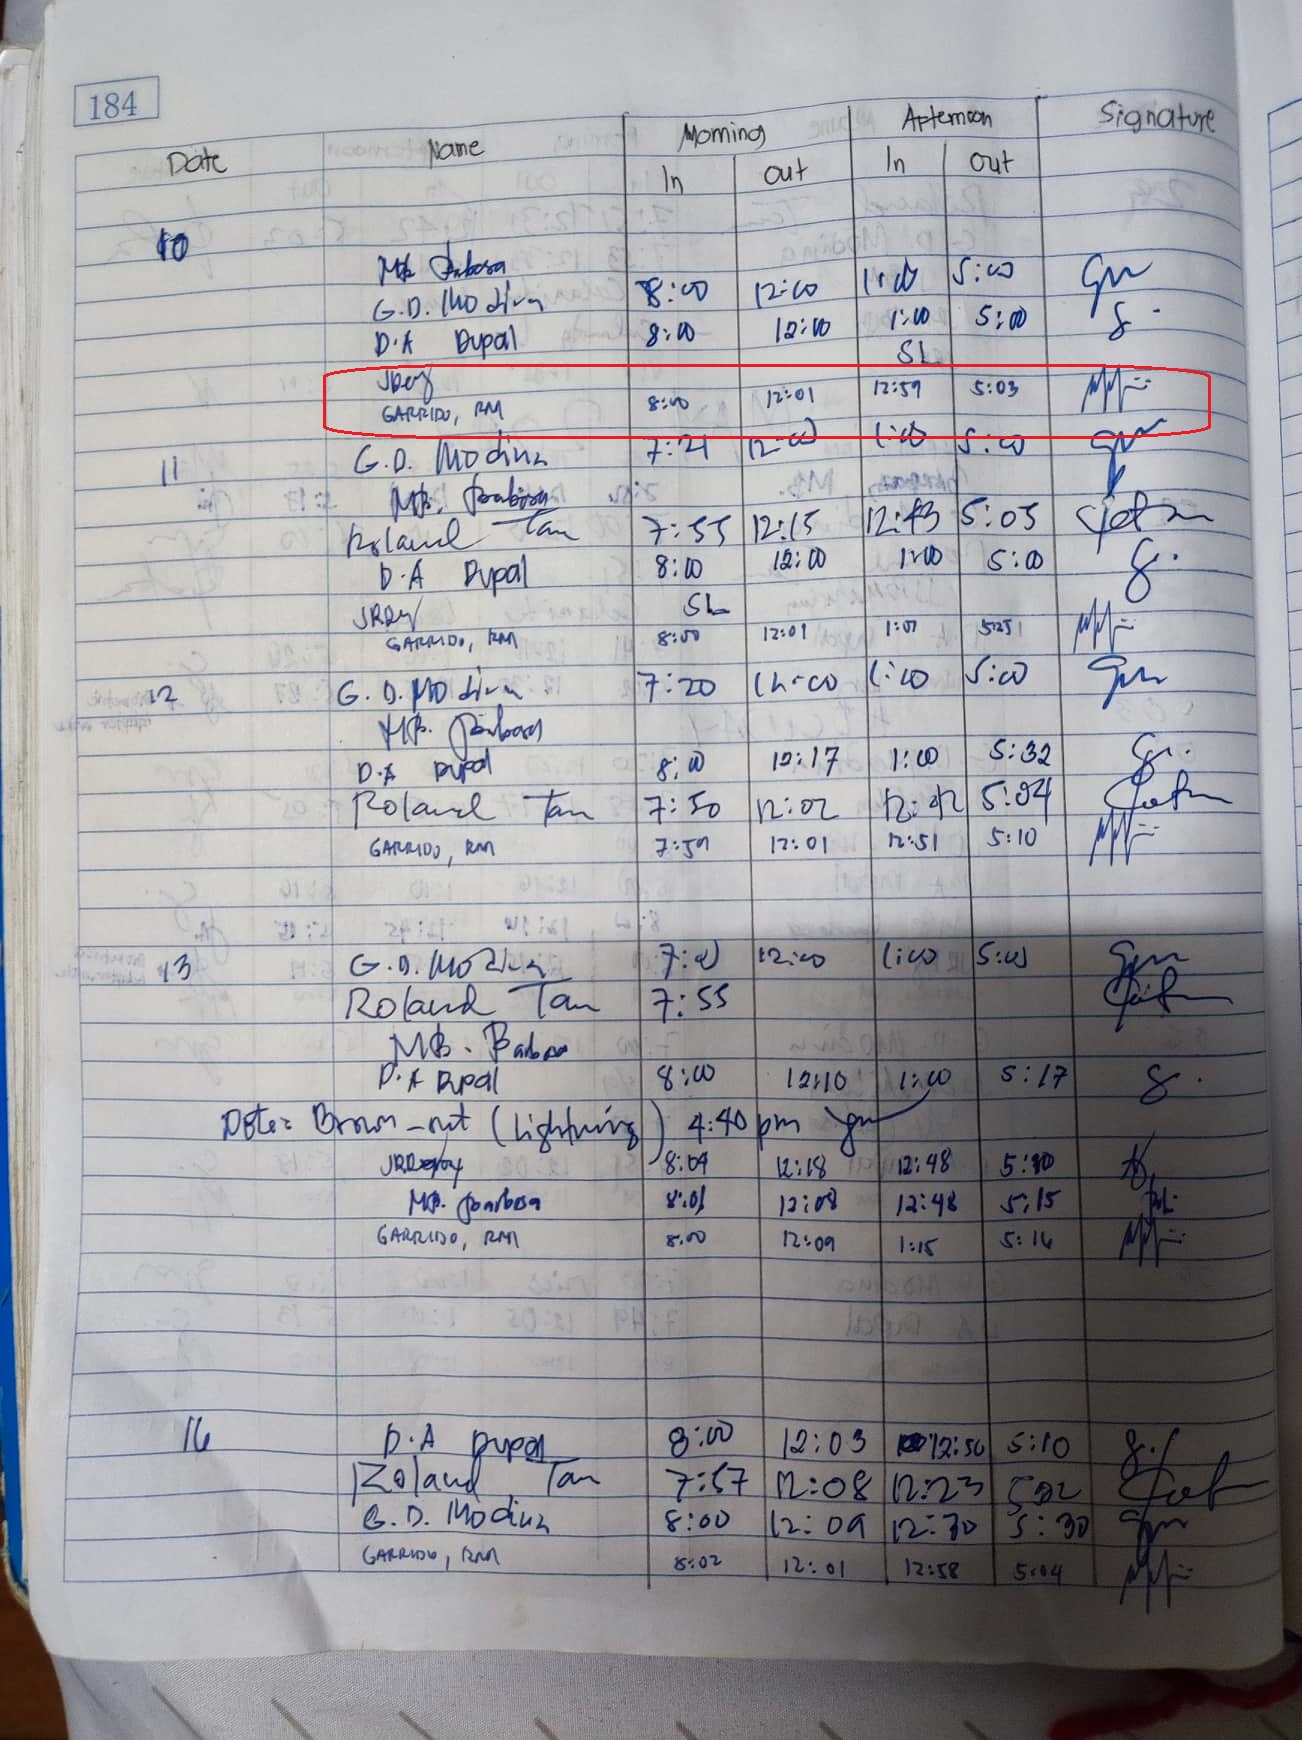 184
Date Name Morning Afternoon Signature
In Out In Out
10
MB. Barbosa
G.D. Modina 8:00 12:00 1:00 5:00
D.A Dupal 8:00 12:00 1:00 5:00
SL
GARRIDO, RM 8:00 12:01 12:59 5:03
11 G.D. Modina 7:21 12:00 1:00 5:00
MB. Barbosa
Roland Tan 7:55 12:15 12:43 5:05
D.A Dupal 8:00 12:00 1:00 5:00
SL
GARRIDO, RM 8:00 12:01 1:01
12 G.D. Modina 7:20 12:00 1:00 5:00
MB. Barbosa
D.A Dupal 8:00 12:17 1:00 5:32
Roland Tan 7:50 12:02 12:42 5:04
GARRIDO, RM 7:59 12:01 12:51 5:10
13 G.D. Modina 12:00 1:00 5:00
Roland Tan 7:55
MB. Barbosa
D.A Dupal 8:00 12:10 1:00 5:17
Note: Brown-out (Lightning) 4:40 pm
8:09 12:18 12:48
MB. Barbosa 8:01 12:08 12:48 5:15
GARRIDO, RM 8:00 12:09 1:15 5:16
16 D.A Dupal 8:00 12:03 12:50 5:10
Roland Tan 7:57 12:08 12:23
G.D. Modina 8:00 12:09 12:30 5:30
GARRIDO, RM 8:02 12:01 12:58 5:04